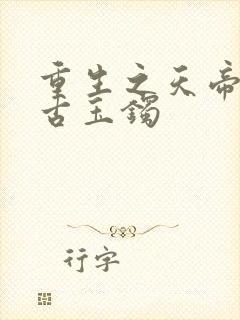 重生之天帝
古玉镯
行字